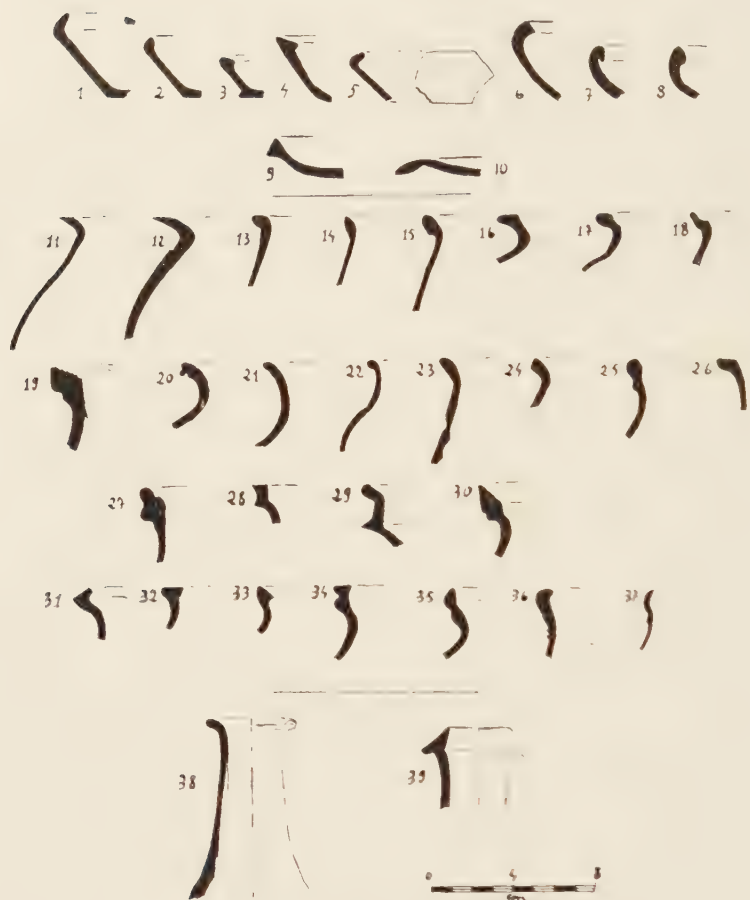 1 2 3 4 5 6 7 8
9 10
11 12 13 14 15 16 17 18
19 20 21 22 23 24 25 26
27 28 29 30
31 32 33 34 35 36 37
38 39
0 4 8
cm